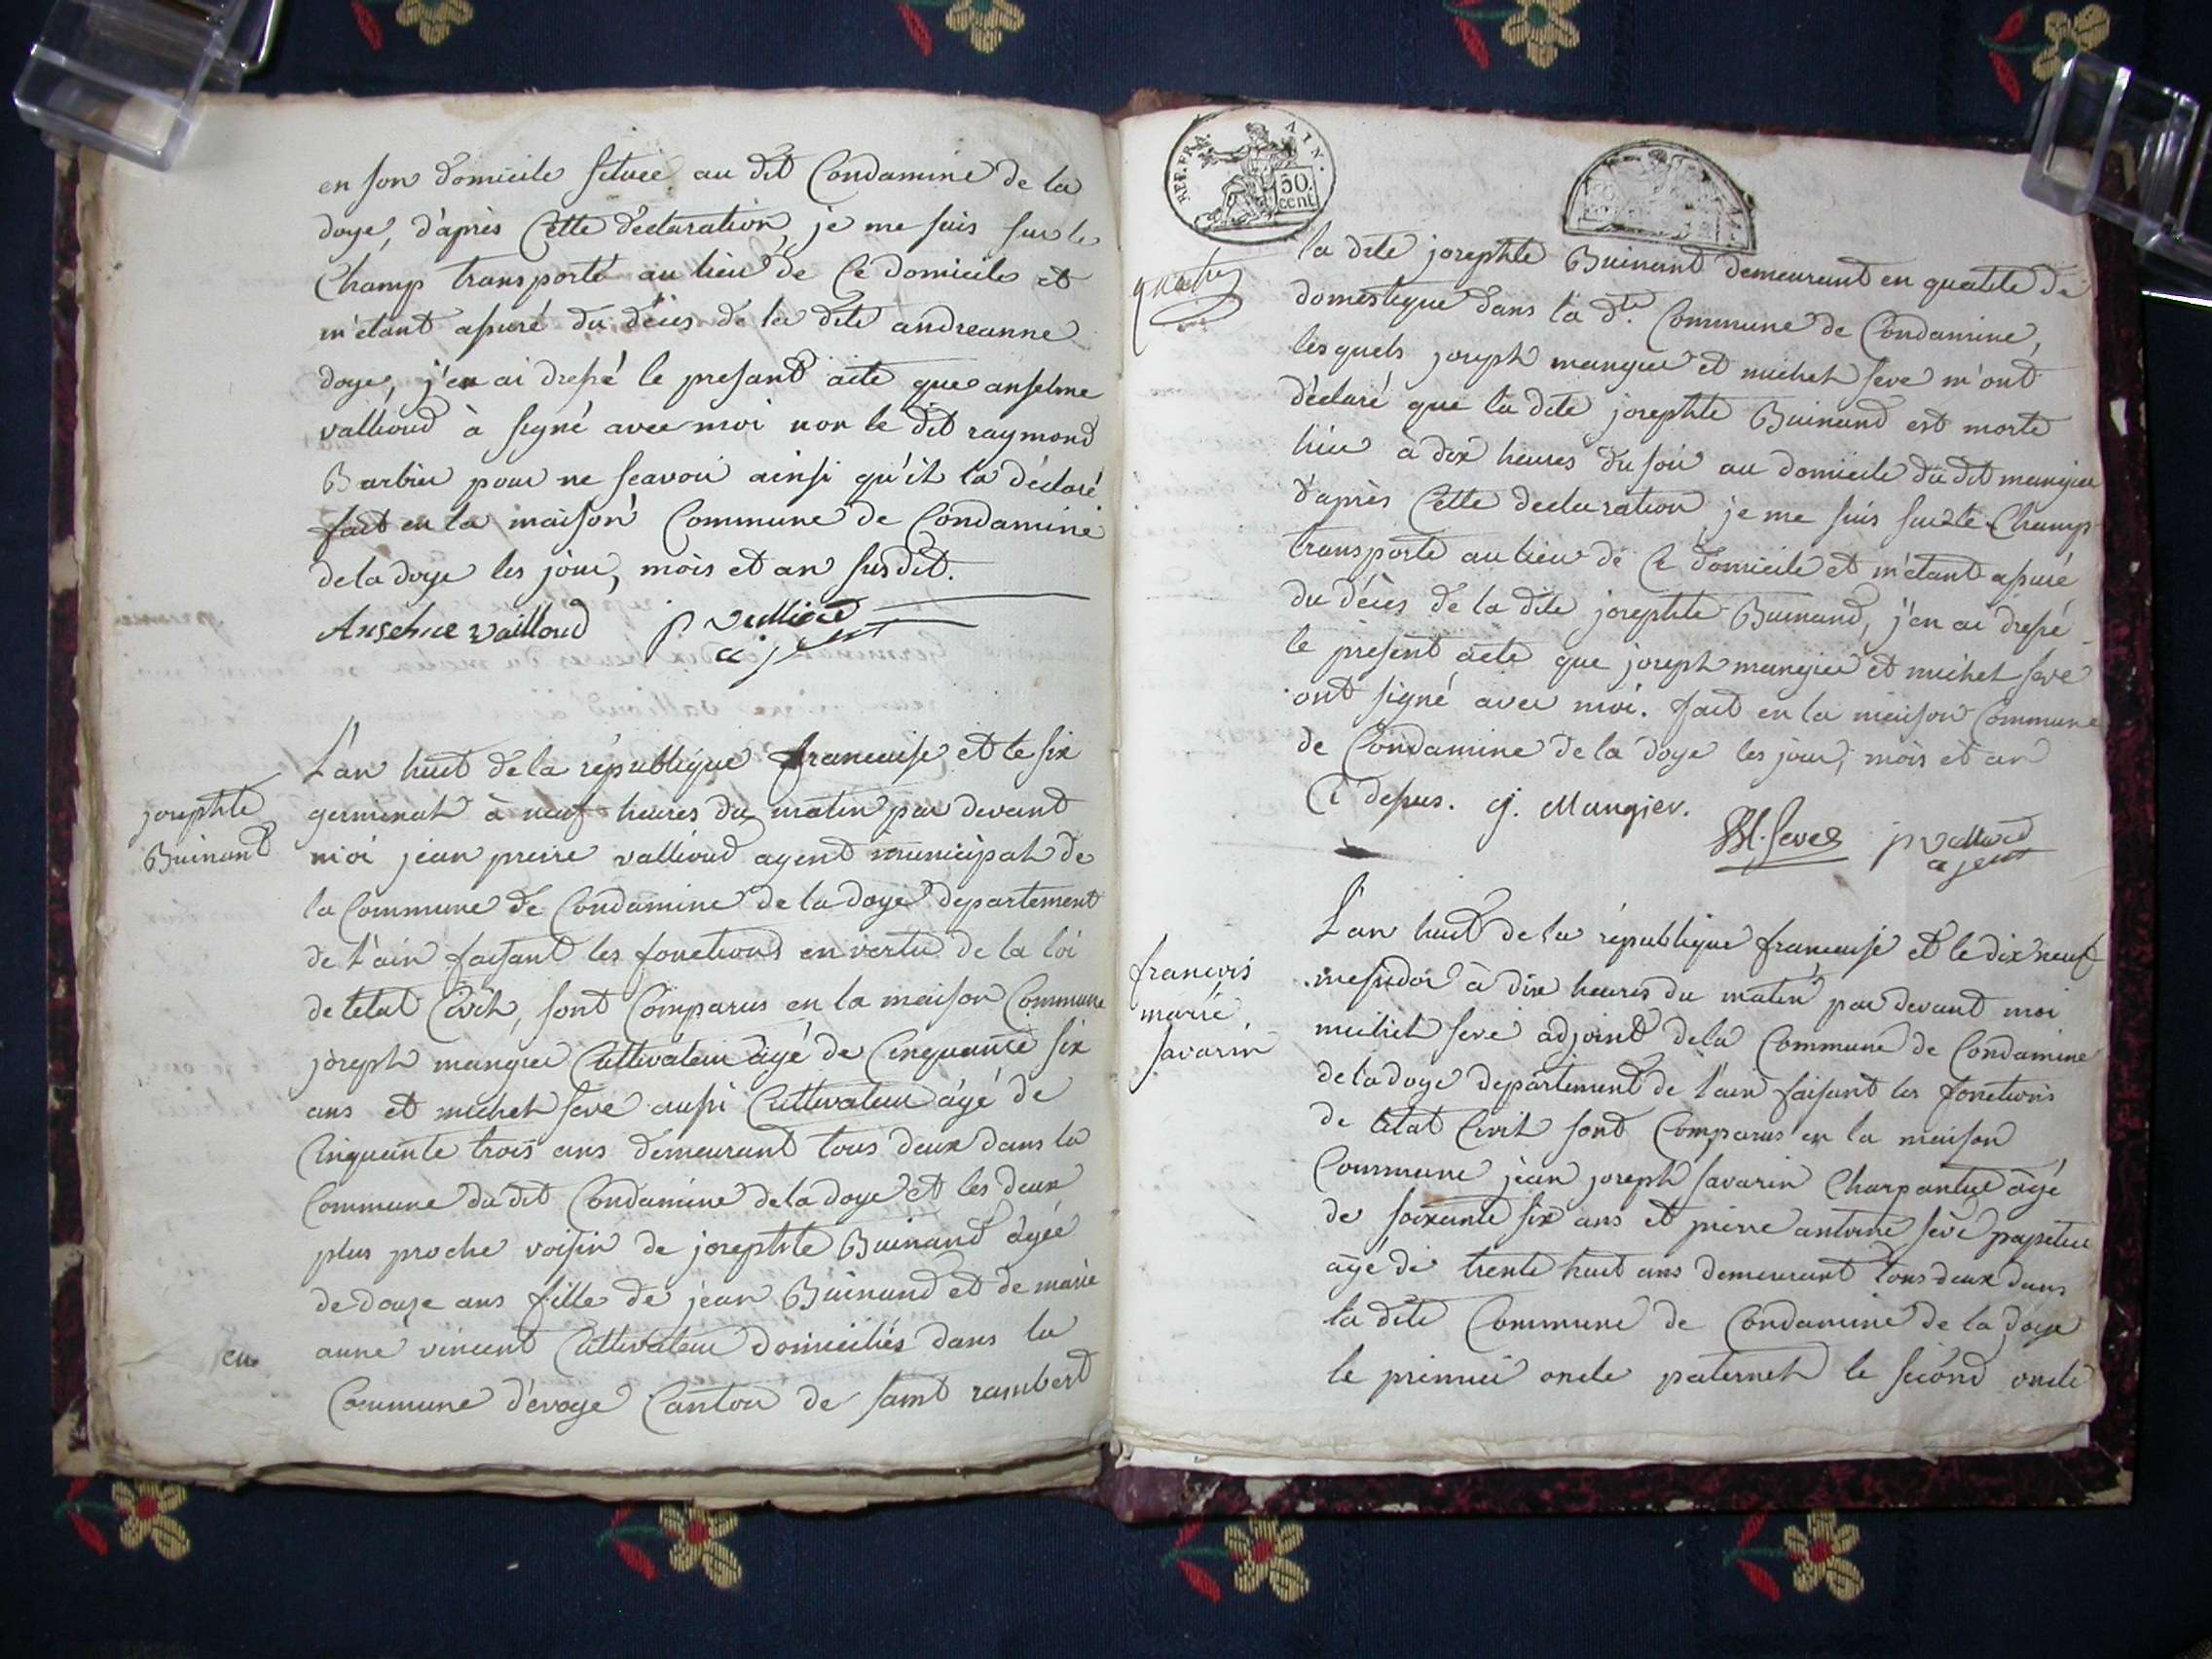 en son domicile situee au dit Condamine de la
doye, d'après Cette déclaration, je me suis sur le
Champ transporté au lieu de Ce domicile et
m'étant assuré du déces de la dite andreanne
doye, j'en ai dressé le presant acte que anselme
vallioud à signé avec moi non le dit raymond
Barbier pour ne scavoir ainsi qu'il la déclaré
fait en la maison Commune de Condamine
de la doye les jour, mois et an susdit.
Anselme vailloud
joséphte
Buinand
L'an huit de la république francaise et le six
germinal à neuf heures du matin par devant
moi jean pierre vallioud agent municipal de
la Commune de Condamine de la doye departement
de l'ain faisant les fonctions en vertu de la loi
de l'etat Civil, sont Comparus en la maison Commune
joseph mangier Cultivateur âgé de Cinquante six
ans et michel seve aussi Cultivateur âgé de
Cinquante trois ans demeurant tous deux dans la
Commune du dit Condamine de la doye et les deux
plus proche voisin de josephte Buinand âgée
de douze ans fille de jean Buinand et de marie
anne vincent Cultivateur domiciliés dans la
Commune d'evoge Canton de saint rambert
REP. FRA. AIN.
50.
cent
la dite josephte Buinand demeurant en qualité de
domestique dans la dte. Commune de Condamine,
lesquels joseph mangier et michel seve m'ont
déclaré que la dite josephte Buinand est morte
hier à dix heures du soir au domicile du dit mangier
d'après Cette declaration je me suis sur le Champ
transporté au lieu de Ce domicile et m'étant assuré
du déces de la dite josephte Buinand, j'en ai dressé
le présent acte que joseph mangier et michel seve
ont signé avec moi. fait en la maison Commune
de Condamine de la doye les jour, mois et an
Ci dessus. j. Mangier.
M. Seve
francois
marie
savarin
L'an huit de la république francaise et le dix neuf
messidor à dix heures du matin par devant moi
michel seve adjoint de la Commune de Condamine
de la doye departement de l'ain faisant les fonctions
de l'etat Civil sont Comparus en la maison
Commune jean joseph savarin Charpantier âgé
de soixante six ans et pierre antoine seve papetier
âgé de trente huit ans demeurant tous deux dans
la dite Commune de Condamine de la doye
le premier oncle paternel le second oncle